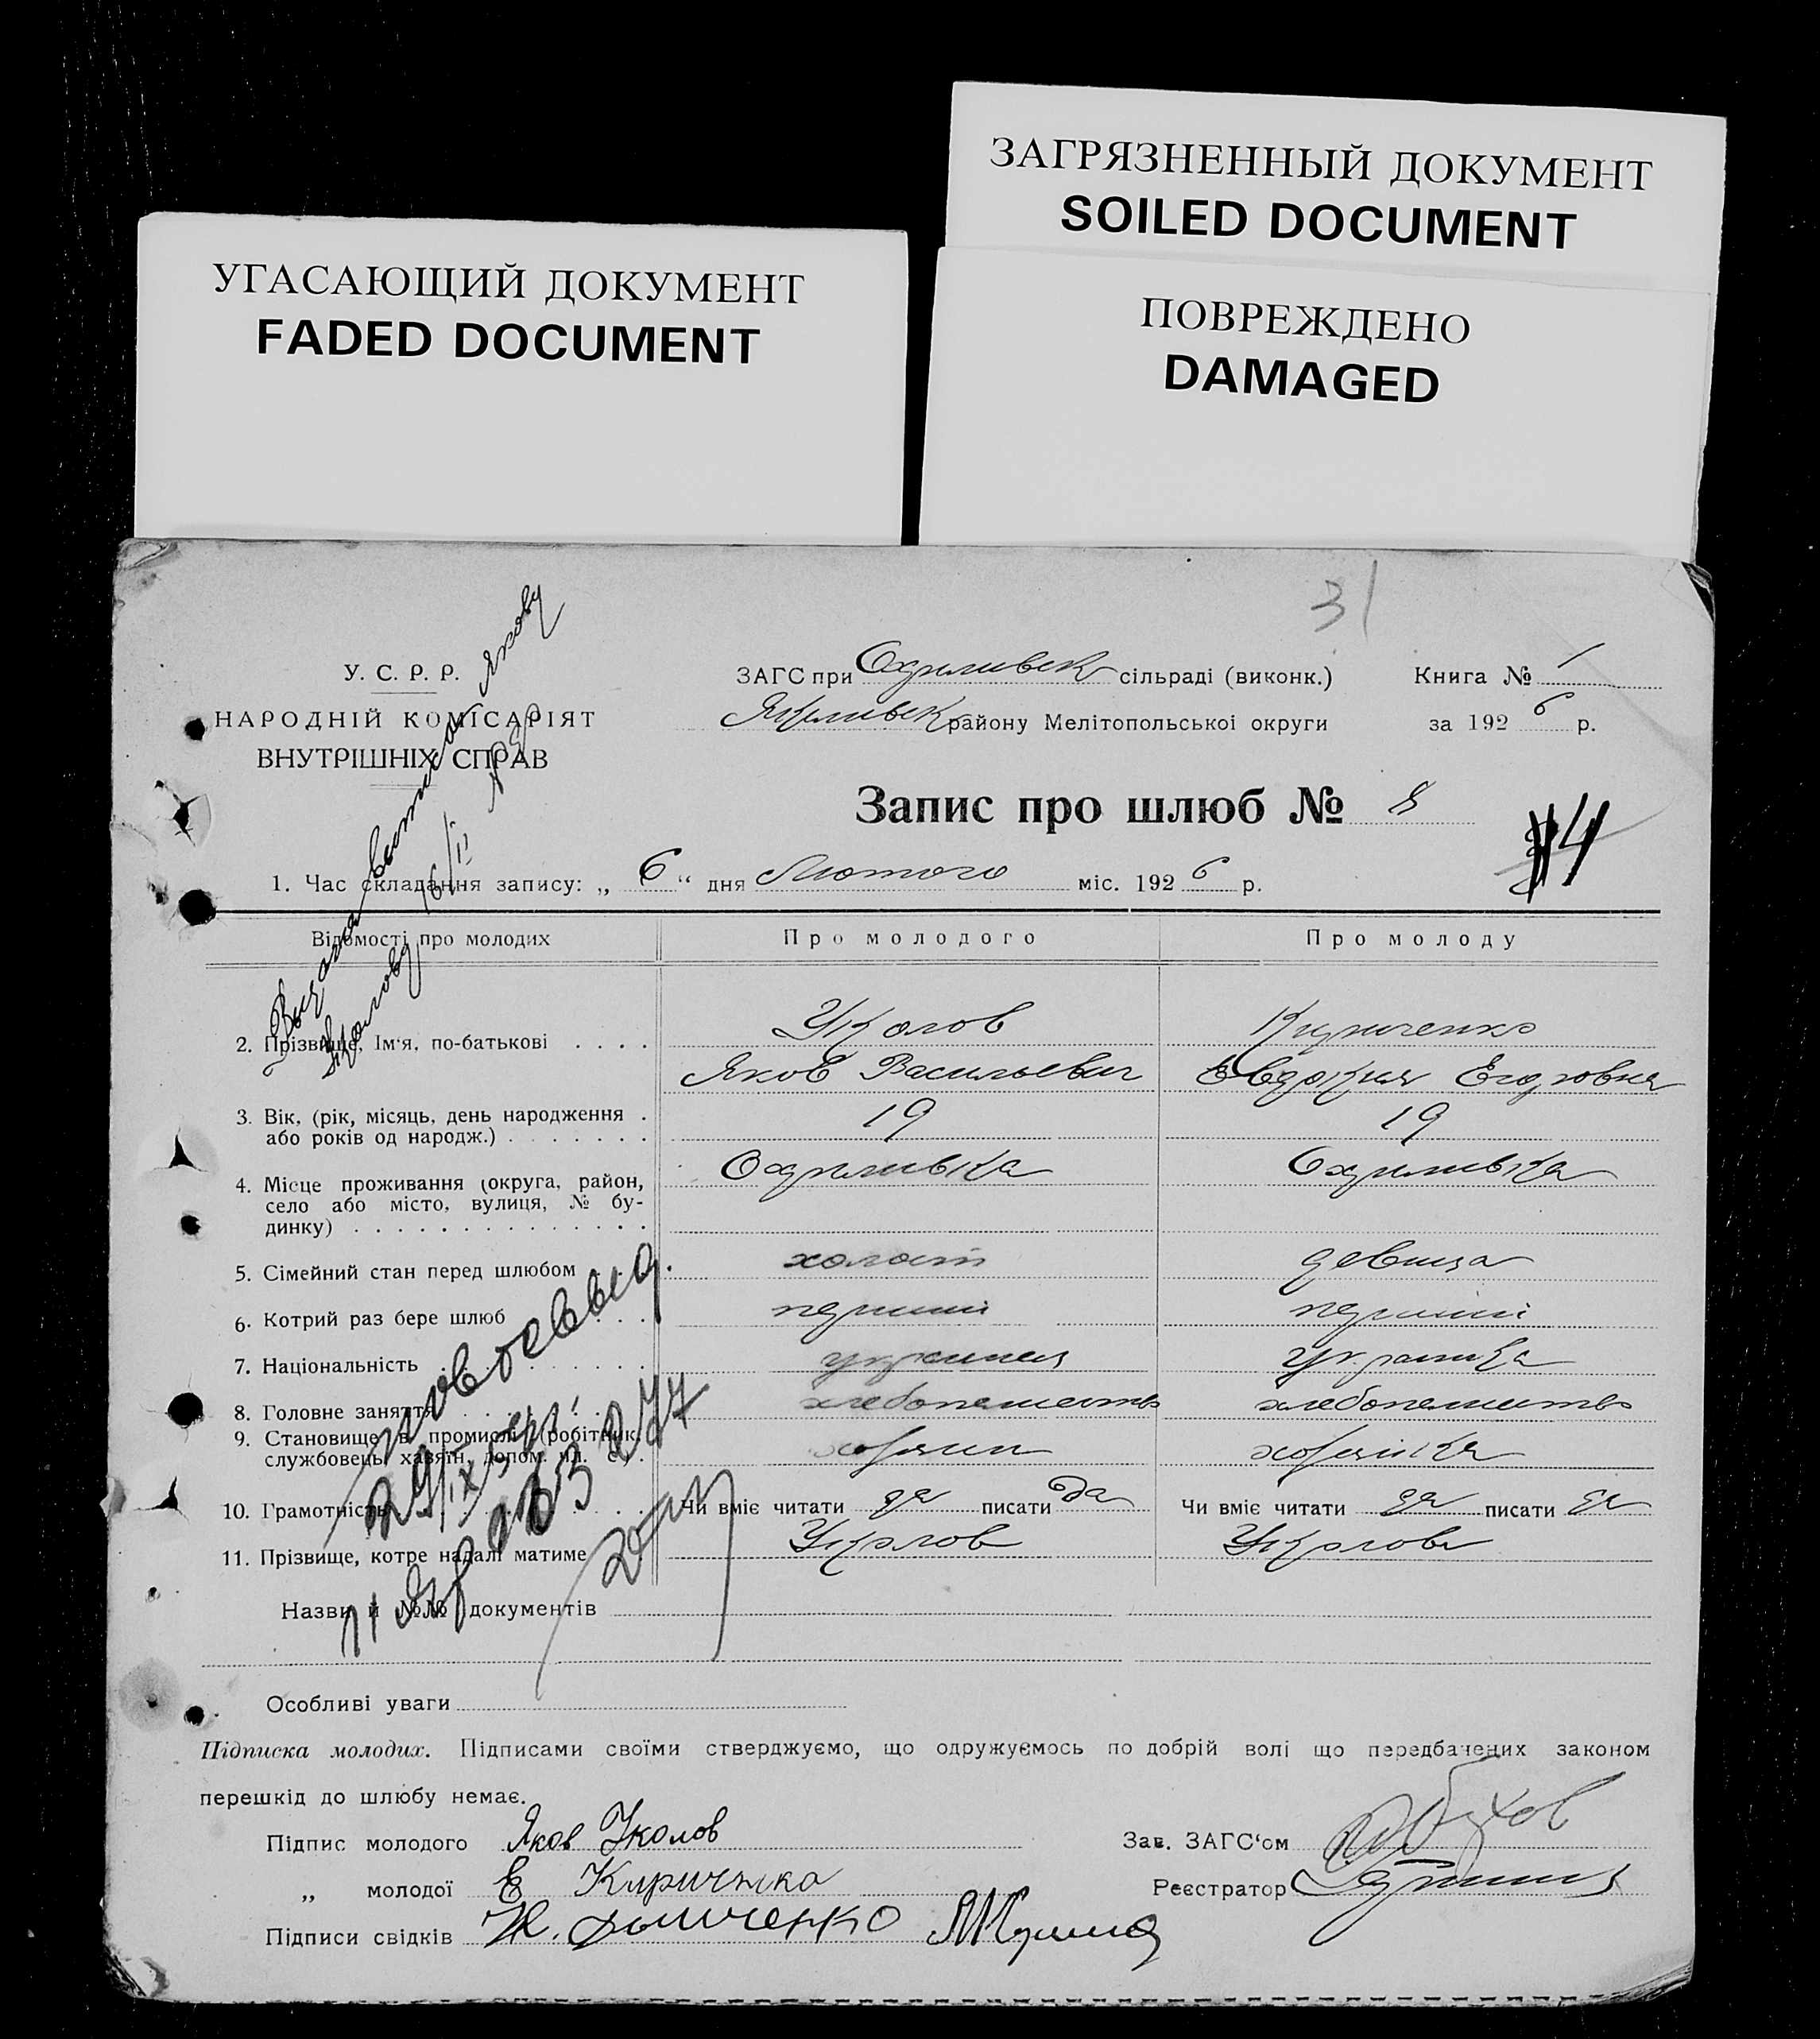 ЗАГРЯЗНЕННЫЙ ДОКУМЕНТ
SOILED DOCUMENT
УГАСАЮЩИЙ ДОКУМЕНТ
FADED DOCUMENT
ПОВРЕЖДЕНО
DAMAGED
31
У. С. Р. Р.
НАРОДНІЙ КОМІСАРІЯТ
ВНУТРІШНІХ СПРАВ
ЗАГС при Охримивск сільраді (виконк.) Книга № 1
Якимивск району Мелітопольської округи за 1926 р.
Запис про шлюб № 8
#4
1. Час складання запису: „ 6 “ дня Лютого міс. 1926 р.
Відомості про молодих Про молодого Про молоду
2. Прізвище, Ім'я, по-батькові . . . . Уколов Кириченко
Яков Васильевич Евдокия Егоровна
3. Вік, (рік, місяць, день народження . 19 19
або років од народж.) . . . . . . .
4. Місце проживання (округа, район, Охримивка Охримивка
село або місто, вулиця, № бу-
динку) . . . . . . . . . . . . . .
5. Сімейний стан перед шлюбом холост девица
6. Котрий раз бере шлюб перший перший
7. Національність украинец украинка
8. Головне заняття хлебопашество хлебопашество
9. Становище в промислі (робітник,
службовець, хазяїн, допом. чл. с.) . хозяин хозяйка
10. Грамотність Чи вміє читати да писати да Чи вміє читати да писати да
11. Прізвище, котре надалі матиме Уколов Уколова
Назви й №№ документів
Особливі уваги
Підписка молодих. Підписами своїми стверджуємо, що одружуємось по добрій волі що передбачених законом
перешкід до шлюбу немає.
Підпис молодого Яков Уколов Зав. ЗАГС‘ом
„ молодої Е Кириченко Реєстратор
Підписи свідків
Выдана выписка Якову
Уколову 16/II